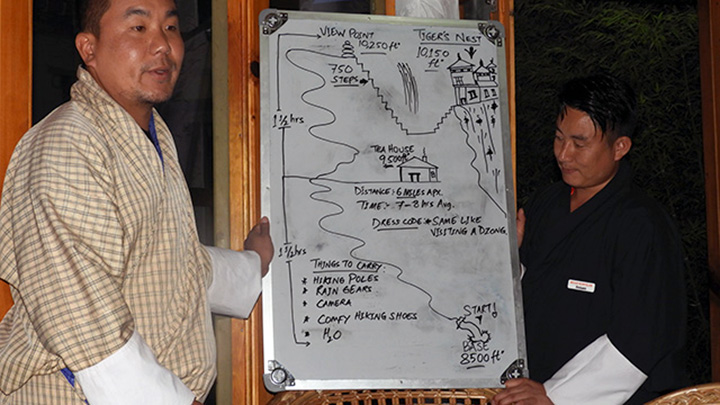 VIEW POINT
10,250 ft
TIGER'S NEST
10,150
ft
750
STEPS
1½ hrs
TEA HOUSE
9,500 ft
DISTANCE:- 6 MILES APX.
TIME:- 7-8 hrs Avg.
DRESS CODE:- SAME LIKE
VISITING A DZONG.
1½ hrs
THINGS TO CARRY:
* HIKING POLES
* RAIN GEARS
* CAMERA
* COMFY HIKING SHOES
* H2O
START!
BASE
8500 ft